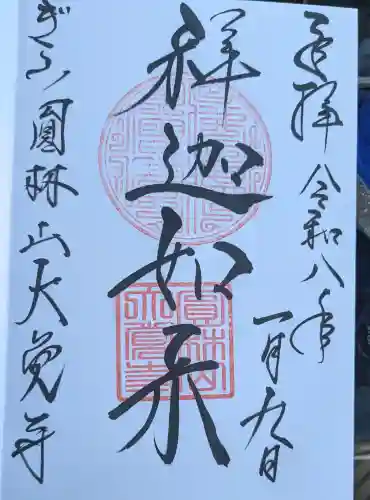 奉拝 令和八年
一月九日
釈迦如来
ぎふ 圓林山 大覚寺